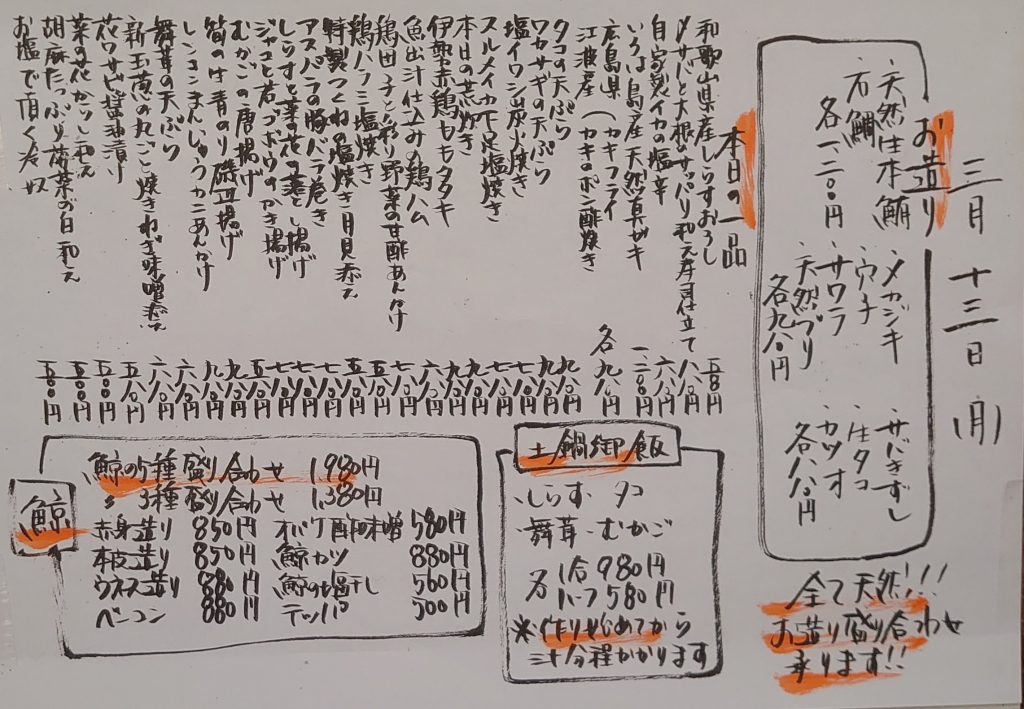 三月十三日(月)
お造り
・天然生本鮪
・石鯛
各一二〇〇円
・メカジキ
・穴子
・サワラ
・天然ブリ
各九八〇円
・サバきずし
・生タコ
・カツオ
各八八〇円
全て天然!!!
お造り盛り合わせ
承ります!!
本日の一品
和歌山県産しらすおろし 五八〇円
〆サバと大根のサッパリ和え寿司仕立て 八八〇円
自家製イカの塩辛 六八〇円
いろは島産天然真ガキ 一二〇〇円
広島県江波産(カキフライ
(カキのポン酢焼き
各九八〇円
タコの天ぷら 九八〇円
ワカサギの天ぷら 九八〇円
塩イワシ炭火焼き 七八〇円
スルメイカ下足塩焼き 七八〇円
本日の荒炊き 八八〇円
伊勢赤鶏ももタタキ 九八〇円
魚出汁仕込みの鶏ハム 七八〇円
鶏団子と彩り野菜の甘酢あんかけ 八八〇円
鶏ハラミ塩焼き 五八〇円
特製つくねの塩焼き月見添え
アスパラの豚バラ巻き
しらすと菜の花の落とし揚げ
ジャコと若ゴボウのかき揚げ
むかごの唐揚げ
筍の生青のり磯辺揚げ
レンコンまんじゅうカニあんかけ
舞茸の天ぷら
新玉葱の丸ごと焼きねぎ味噌添え
花ワサビ醤油漬け
菜の花からし和え
胡麻たっぷり菠菜の白和え
お塩で頂く冷奴
土鍋御飯
・しらす・タコ
・舞茸・むかご
各 1合 980円
ハーフ 580円
※作り始めてから
三十分程かかります
鯨
鯨の5種盛り合わせ 1,980円
〃 3種盛り合わせ 1,380円
赤身造り 850円
本皮造り 850円
ウネス造り 880円
ベーコン 880円
オバケ酢味噌 580円
鯨カツ 880円
鯨の塩干し 560円
テッパ 500円